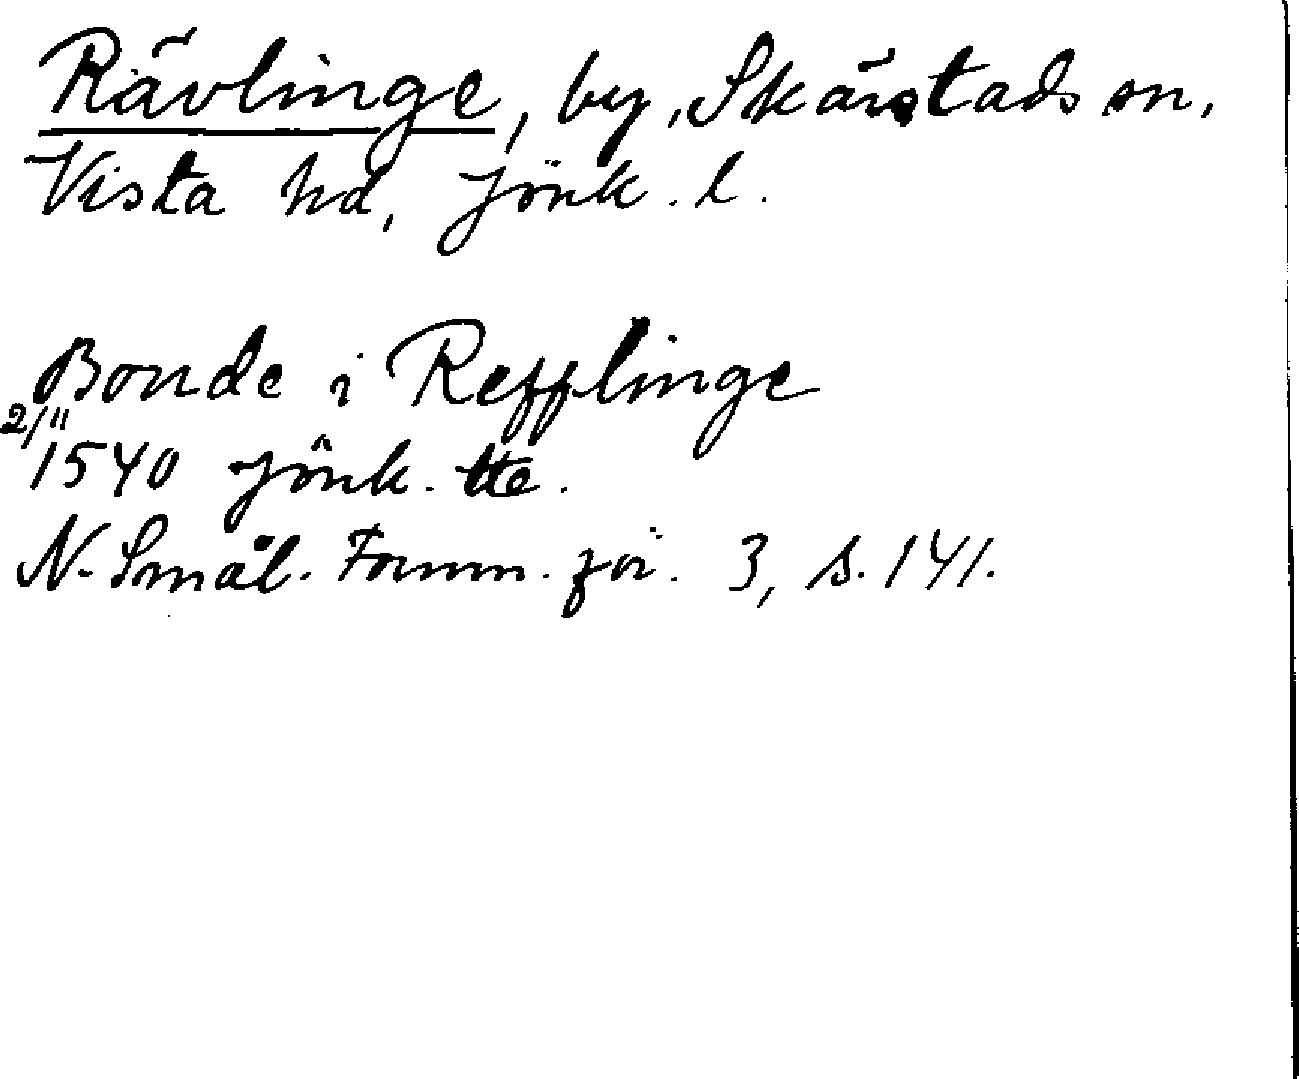 Rävlinge, by, Skärstads sn,
Vista hd, Jönk. l.
Bonde i Refflinge
2/11
1540 Jönk. tb.
N. Smål. Fornm. för. 3, s. 141.